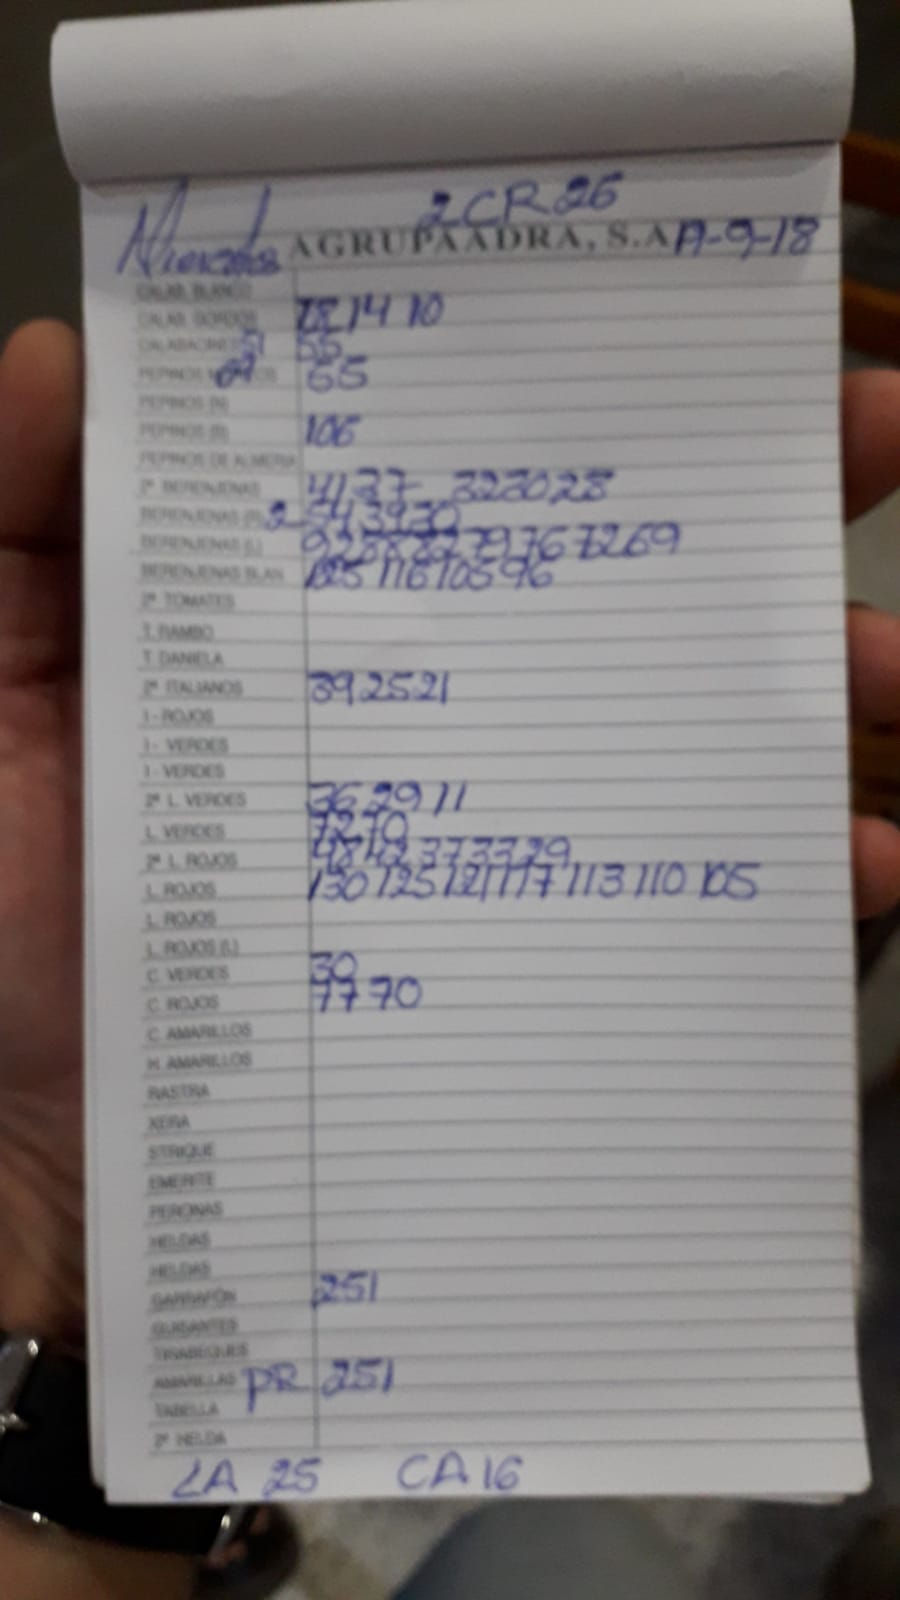 2CR 26
Miercoles AGRUPAADRA, S.A. 19-9-18
CALAB. BLANCO
CALAB. GORDOS 18 14 10
CALABACINES 51 55
PEPINOS 55
PEPINOS (N)
PEPINOS (B) 106
PEPINOS DE ALMERIA
2ª BERENJENAS 41 37 - 32 30 28
BERENJENAS (R) 2- 54 39 30
BERENJENAS (L) 92 88 82 79 76 72 69
BERENJENAS BLAN 125 116 105 96
2ª TOMATES
T. RAMBO
T. DANIELA
2ª ITALIANOS 39 25 21
I - ROJOS
I - VERDES
I - VERDES
2ª L. VERDES 36 29 11
L. VERDES 72 70
2ª L. ROJOS 48 42 37 33 29
L. ROJOS 130 125 121 117 113 110 105
L. ROJOS
L. ROJOS (L)
C. VERDES 30
C. ROJOS 77 70
C. AMARILLOS
H. AMARILLOS
RASTRA
XERA
STRIQUE
EMERITE
PERONAS
HELDAS
HELDAS
GARRAFÓN 251
GUISANTES
TIRABEQUES
AMARILLAS PR 251
TABELLA
2ª HELDA
LA 25 CA 16